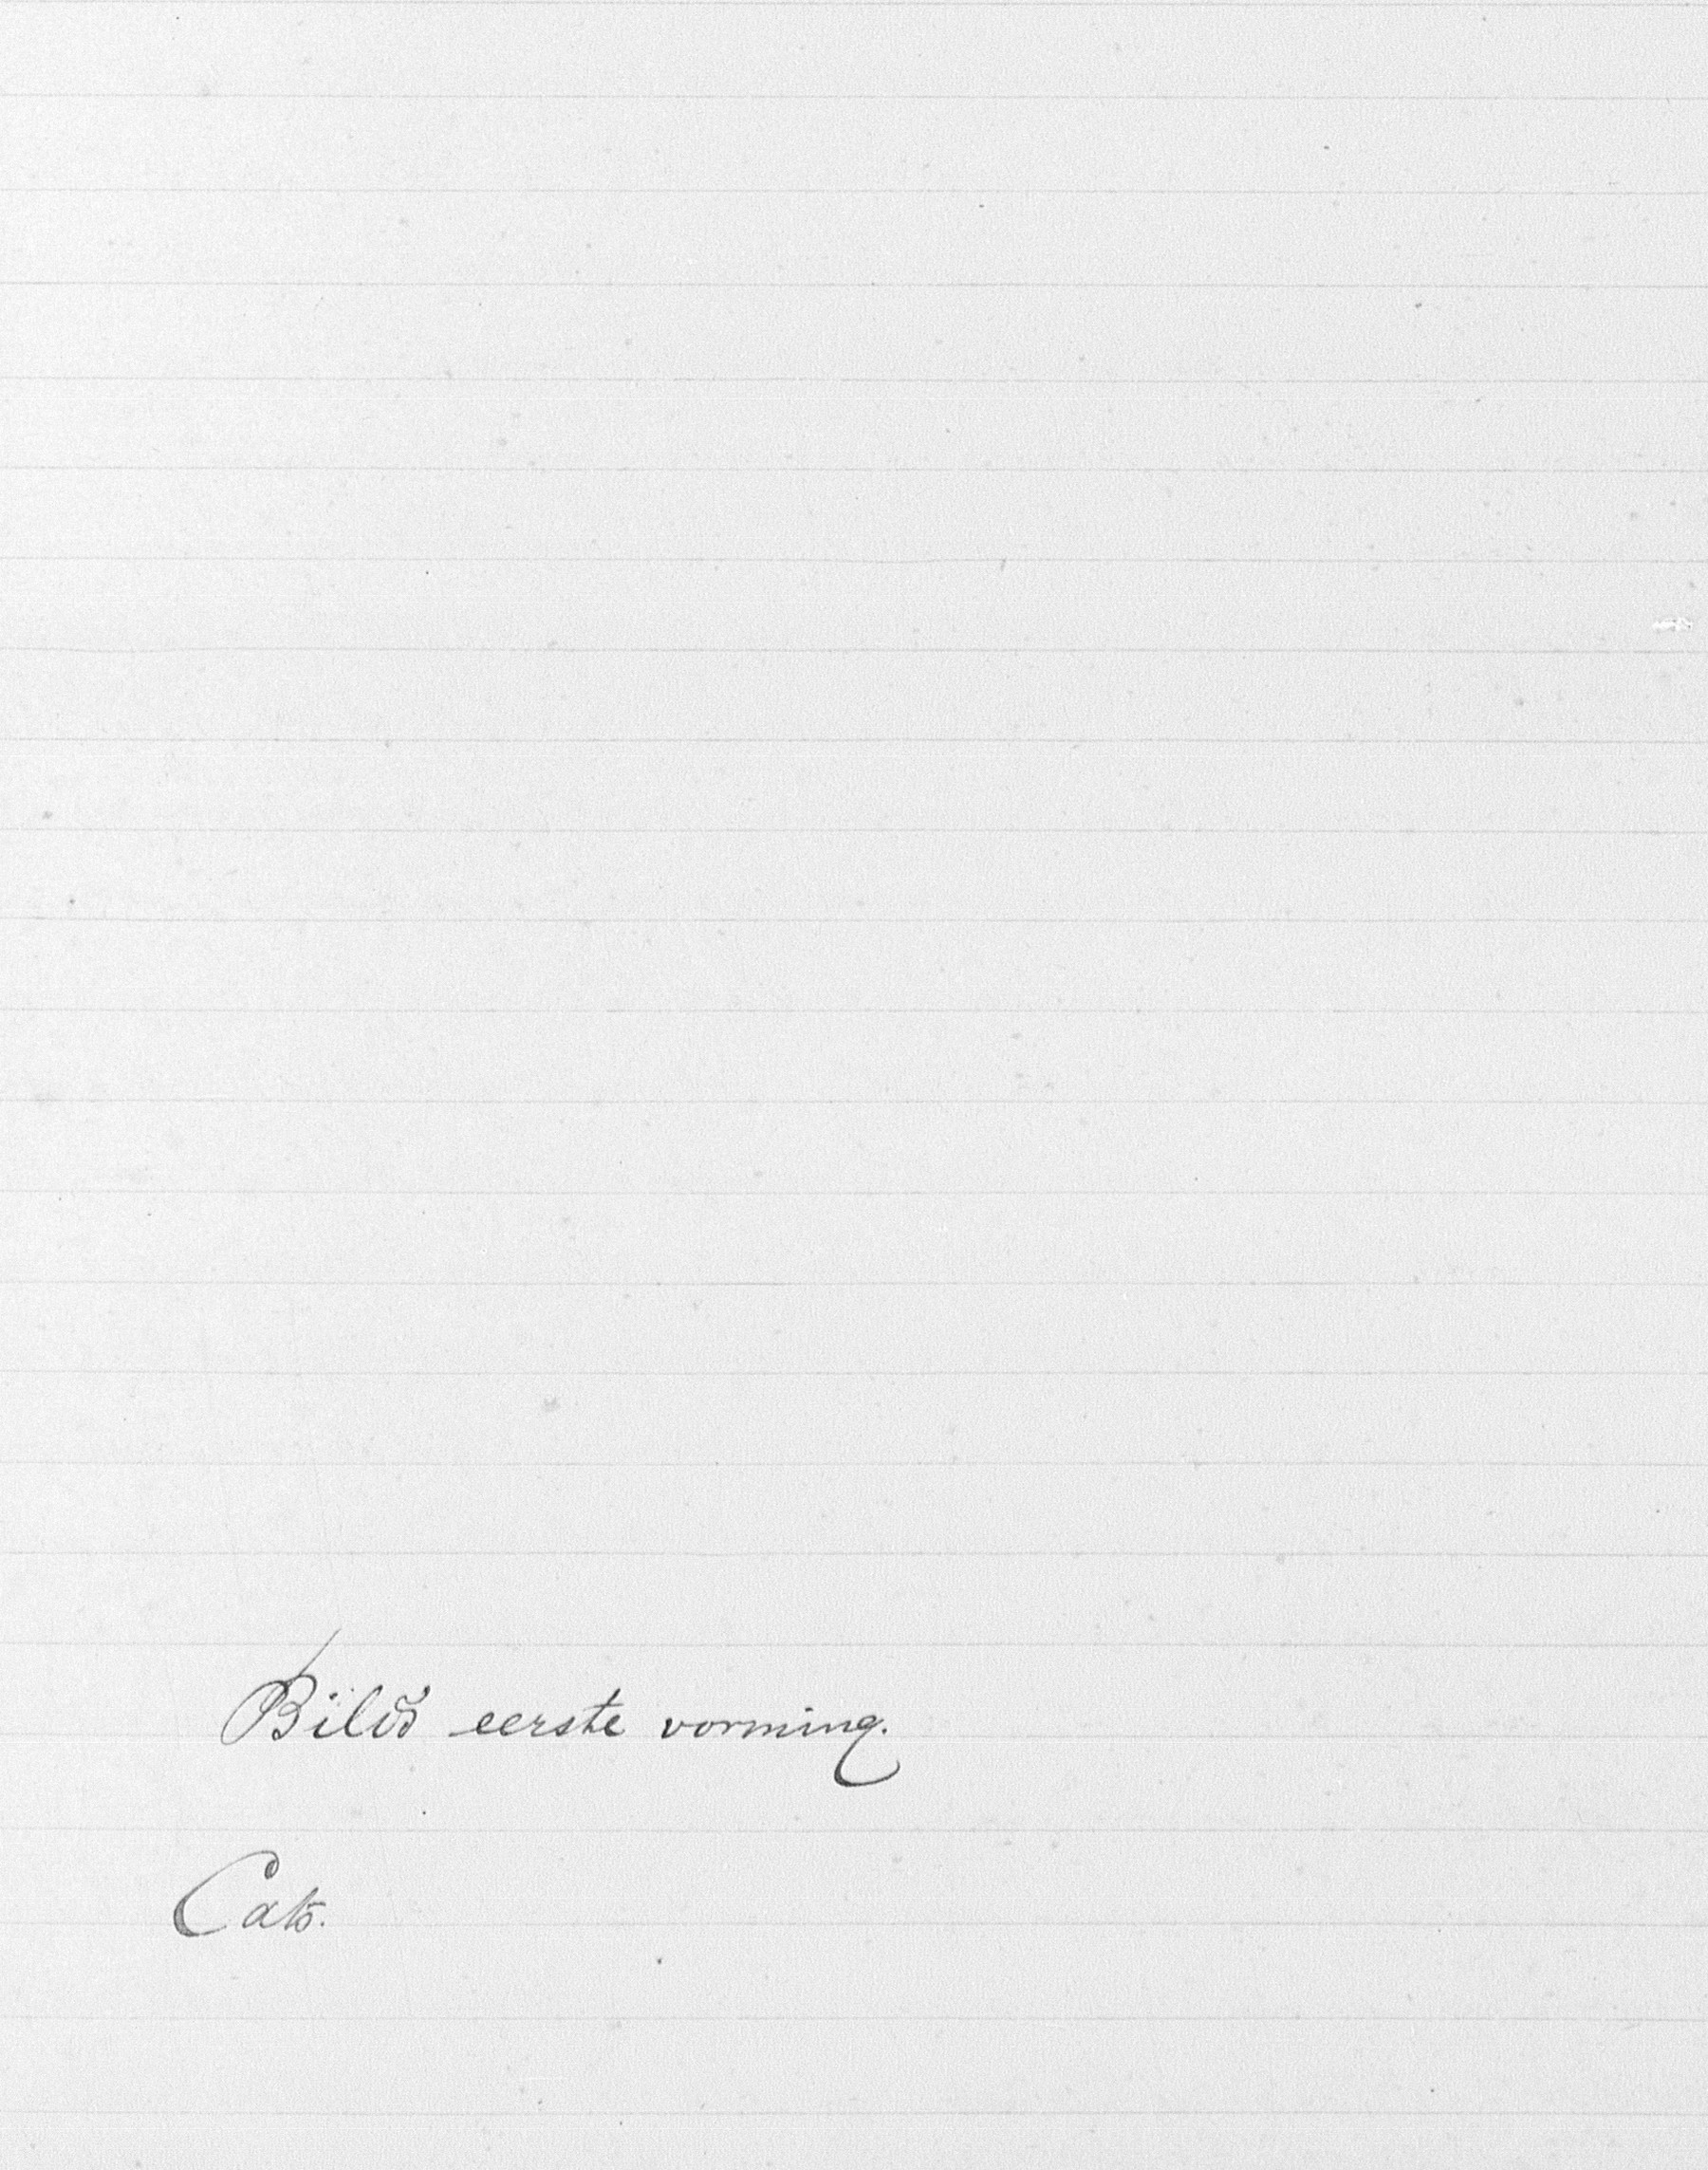 Bild's eerste vorming.
Cats.